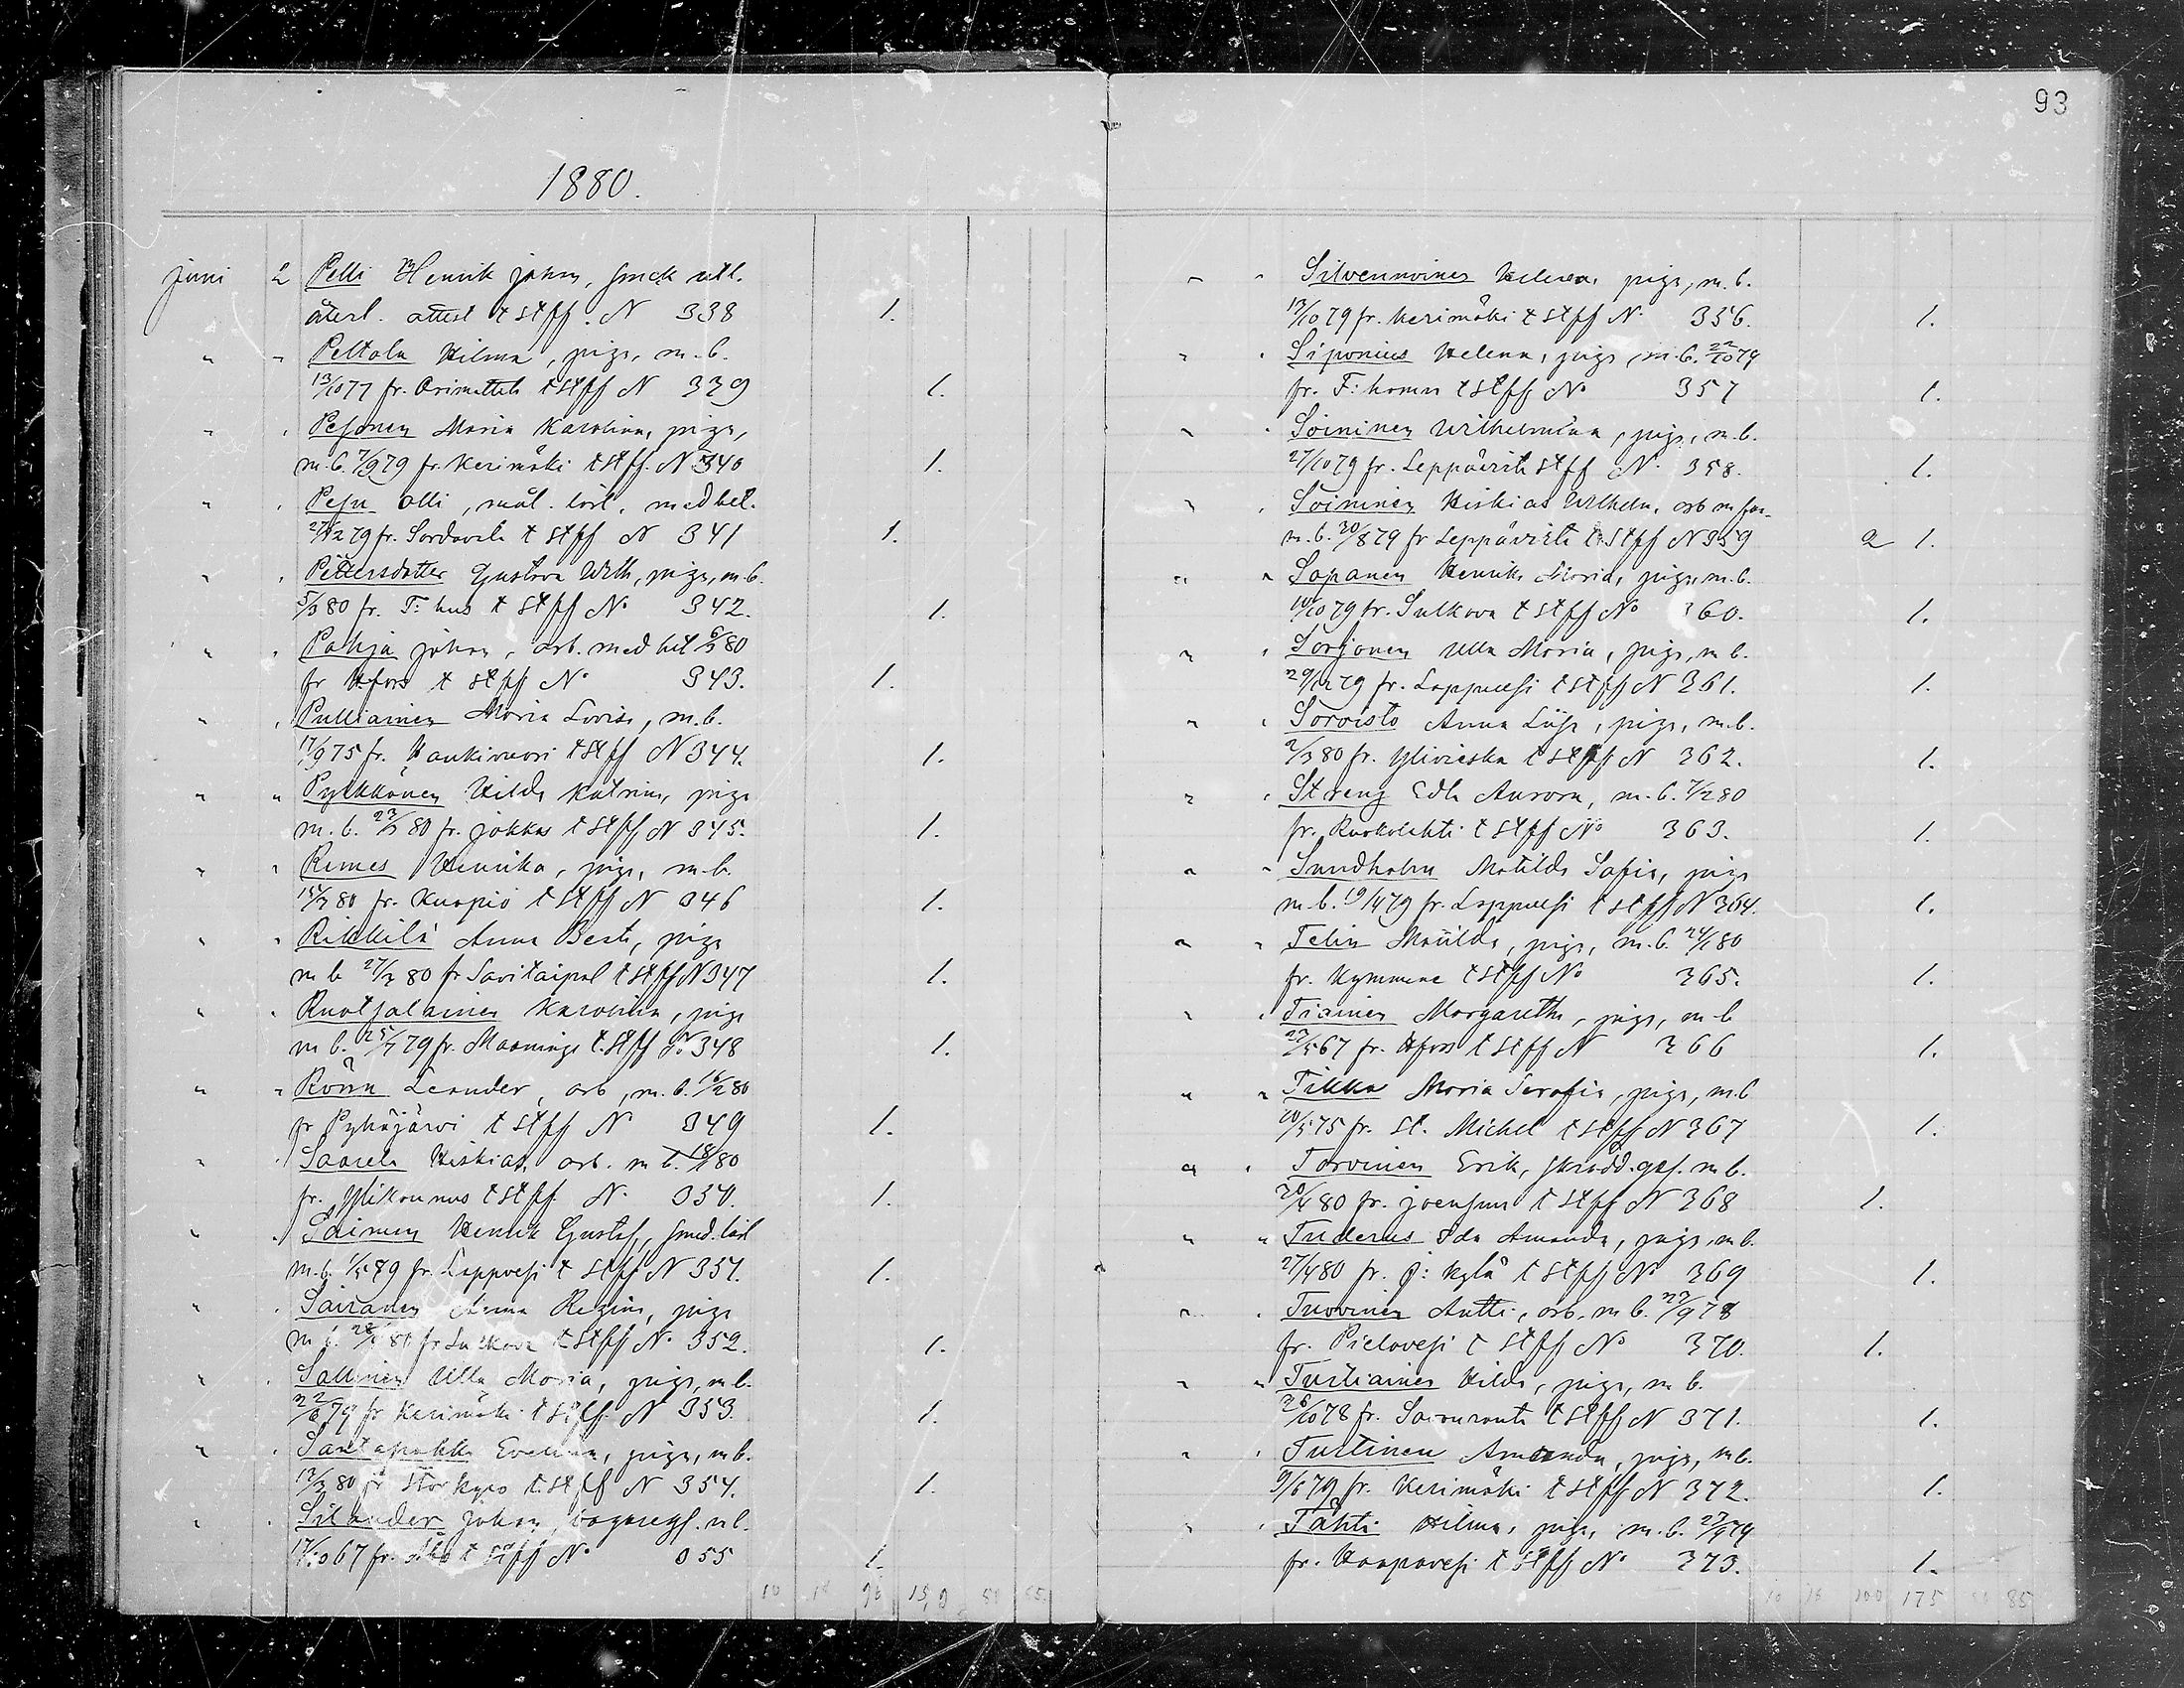 93
1880.
juni 2 Pelli Henrik Johan, smed utl.
återl. attest t stpf. N 338 1.
" " Peltola Hilma, piga, m.b.
13/10 77 fr. Orimattila t stpf N 339 1.
" " Pesonen Maria Karolina, piga,
m.b. 7/9 79 fr. Kerimäki t stpf. N 340 1.
" " Pesu Olli, mål. lärl. med bet.
27/12 79 fr. Sordavala t stpf N 341 1.
" " Pettersdotter Gustava Wilh, piga, m.b.
5/3 80 fr. T:hus t stpf No 342. 1.
" " Pohja Johan, arb. med bet 6/3 80
fr H.fors t stpf No 343. 1.
" " Pulliainen Maria Lovisa, m.b.
17/9 75 fr. Haukivuori t stpf N 344. 1.
" " Pylkkänen Hilda Katrina, piga
m.b. 23/3 80 fr. Jokkas t stpf N 345. 1.
" " Remes Henrika, piga, m.b.
15/3 80 fr. Kuopio t stpf N 346 1.
" " Rikkilä Anna Beata, piga
m b 27/3 80 fr Savitaipal t stpf N 347 1.
" " Ruotsalainen Karolina, piga
m b. 25/7 79 fr. Maaninga t. stpf No 348 1.
" " Rönn Leander, arb, m.b. 16/2 80
fr Pyhäjärvi t stpf N 349 1.
" " Saarela Hiskias, arb. m b. 18/ 80
fr. Ylikannus t stpf N. 350. 1.
" " Saimen Henrik Gustaf, smed. lärl
m.b. 1/5 79 fr. Leppvesi t stpf N 351. 1.
" " Sairanen Anna Regina, piga
m b. 28/ 80 fr Sulkava t stpf No 352. 1.
" " Sallinen Ulla Maria, piga, m b.
22/6 79 fr Kerimäki t stpf. N 353. 1.
" " Santapakka Evelina, piga, m b.
13/3 80 fr Storkyro t. stpf N 354. 1.
" " Silander Johan, bagaregs. m b.
17/10 67 fr. Åbo t stpf No 355 1.
" " Silvennoinen Helena, piga, m.b.
13/10 79 fr. Kerimäki t stpf N. 356. 1.
" " Siponius Helena, piga, m.b. 22/10 79
fr. F:hamn t stpf No 357 1.
" " Soininen Wilhelmina, piga, m.b.
27/10 79 fr. Leppävirta stpf N. 358. 1.
" " Soininen Hiskias Wilhelm, arb m fam.
m.b. 30/8 79 fr Leppävirta t stpf N 359 2 1.
" " Sopanen Henrika Maria, piga, m.b.
14/10 79 fr. Sulkava t stpf No 360. 1.
" " Sorjonen Ulla Maria, piga, m b.
29/12 79 fr. Lappvesi t stpf N 361. 1.
" " Sorvisto Anna Lisa, piga, m.b.
2/3 80 fr. Ylivieska t stpf N 362. 1.
" " Streng Edla Aurora, m.b. 7/2 80
fr. Ruokolahti t stpf No 363. 1.
" " Sundholm Matilda Sofia, piga
m b. 19/4 79 fr. Lappvesi t stpf N 364. 1.
" " Telin Matilda, piga, m.b. 24/1 80
fr. Kymmene t stpf No 365. 1.
" " Tiainen Margaretha, piga, m b
23/5 67 fr. H.fors t stpf N 366 1.
" " Tikka Maria Serafia, piga, m.b
10/5 75 fr. St. Michel t stpf N 367 1.
" " Torvinen Erik, skrädd. ges. m b.
20/4 80 fr. Joensuu t stpf N 368 1.
" " Tuderus Ida Amanda, piga, m b.
27/4 80 fr. J:kylä t stpf No 369 1.
" " Tuovinen Antti, arb. m b. 23/9 78
fr. Pielavesi t stpf No 370. 1.
" " Turtiainen Hilda, piga, m b.
26/10 78 fr. Savonranta t stpf N 371. 1.
" " Turtinen Amanda, piga, m b.
9/6 79 fr. Kerimäki t stpf N 372. 1.
" " Tähti Hilma, piga, m.b. 27/9 79
fr. Haapavesi t stpf No 373. 1.
100 175 85